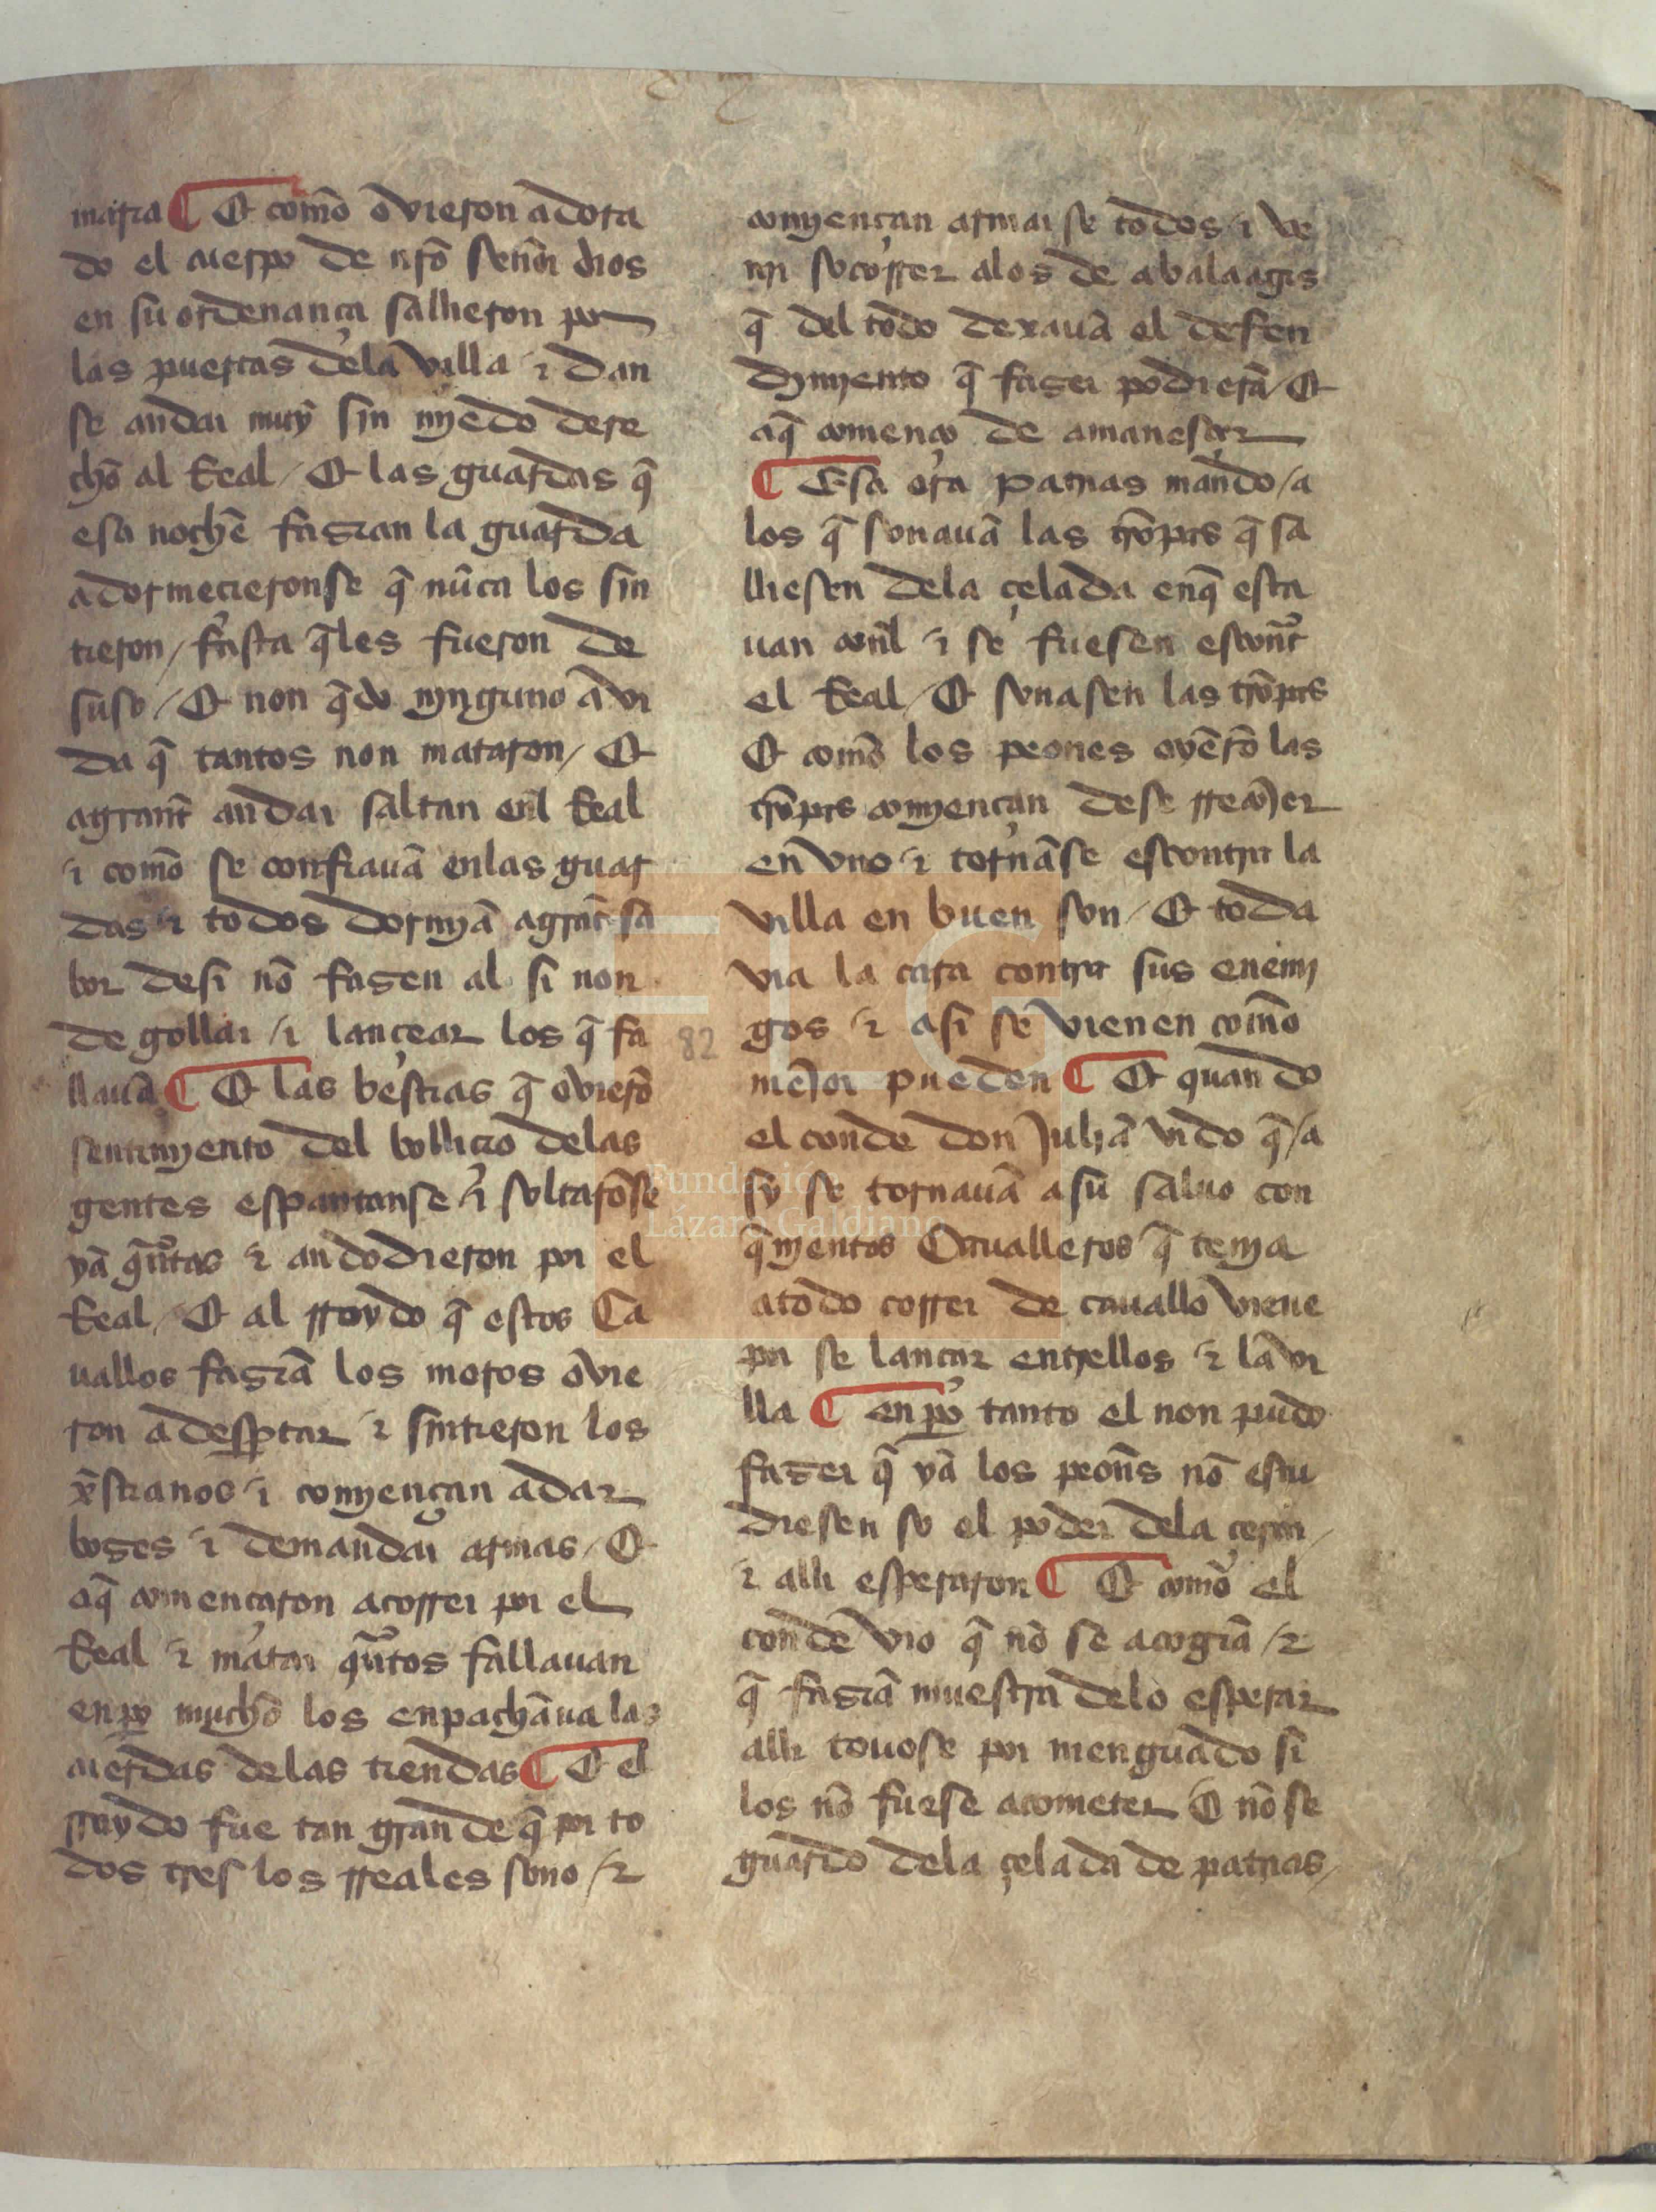 maria ¶ Et com̃o ovieron adora
do el cuerpo de nr̃o señor dios
en su ordenança salieron por
las puertas dela villa & dan
se andar muy sin myedo dere
cho al Real / Et las guardas q̃
esa noche fazian la guarda
adormecieronse q̃ nũca los sin
tieron / fasta q̃les fueron de
suso / Et non q̃do nynguno a vi
da q̃ tantos non mataron / Et
agrant andar saltan enl Real
& com̃o se confiauã enlas guar
das & todos dormyã agrant sa
bor desi nõ fazen al si non
degollar & lançear los q̃ fa
llauã ¶ Et las bestias q̃ ovierõ
sentimyento del bollicio delas
gentes espantanse & soltarõse
yã quãtas & andodieron por el
Real / Et al rroydo q̃ estos Ca
uallos fazian los moros ovie
ron a despertar & sintieron los
xp̃stianos & comyençan adar
bozes & demandar armas / Et
aq̃ comencaron acorrer por el
Real & matar quãtos fallauan
enpo mucho los enpachaua las
cuerdas delas tiendas ¶ Et el
rruydo fue tan grande q̃ por to
dos tres los rreales sono / &
comyençan armar se todos & ve
nir socorrer alos de abalaagis
q̃ del todo dexauã el defen
dymyento q̃ fazer podierã / Et
aq̃ comenco de amanesçer
¶ Esa ora patrias mando / a
los q̃ sonauã las trõpas q̃ sa
lliesen dela çelada enq̃ esta
uan conl & se fuesen escontr̃
el Real / Et sonasen las trõpas
Et com̃o los peones oyerõ las
trõpas comyençan dese rrecojer
en vno & tornãse escontra la
villa en buen son / Et toda
via la cara contra sus enemi
gos & asi se vienen com̃o
mejor pueden ¶ Et quando
el conde don Juliã vido q̃ / a
sy se tornauã a su saluo con
q̃nyentos Caualleros q̃ tenya
atodo correr de cauallo viene
por se lancar entrellos & la vi
lla ¶ enpo tanto el non pudo
fazer q̃ yã los peoñs nõ estu
diesen so el poder dela çerca /
& alli esperaron ¶ Et com̃o el
conde vio q̃ nõ se acogiã / &
q̃ faziã muestra delo esperar
alli touose por menguado si
los nõ fuese acometer Et nõ se
guardo dela çelada de patrias /
82
FLG
Fundación
Lázaro Galdiano